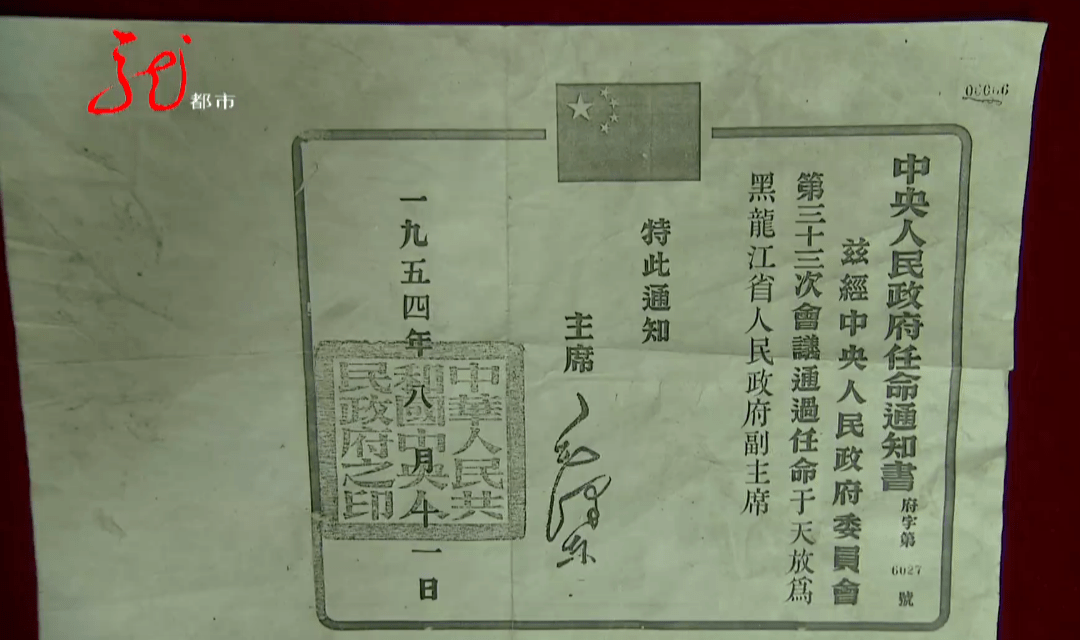 龙
都市
00666
中央人民政府任命通知書
府字第 6027 號
茲經中央人民政府委員會
第三十三次會議通過任命于天放爲
黑龍江省人民政府副主席
特此通知
主席
毛澤东
一九五四年八月十一日
中華人民共
和國中央人
民政府之印